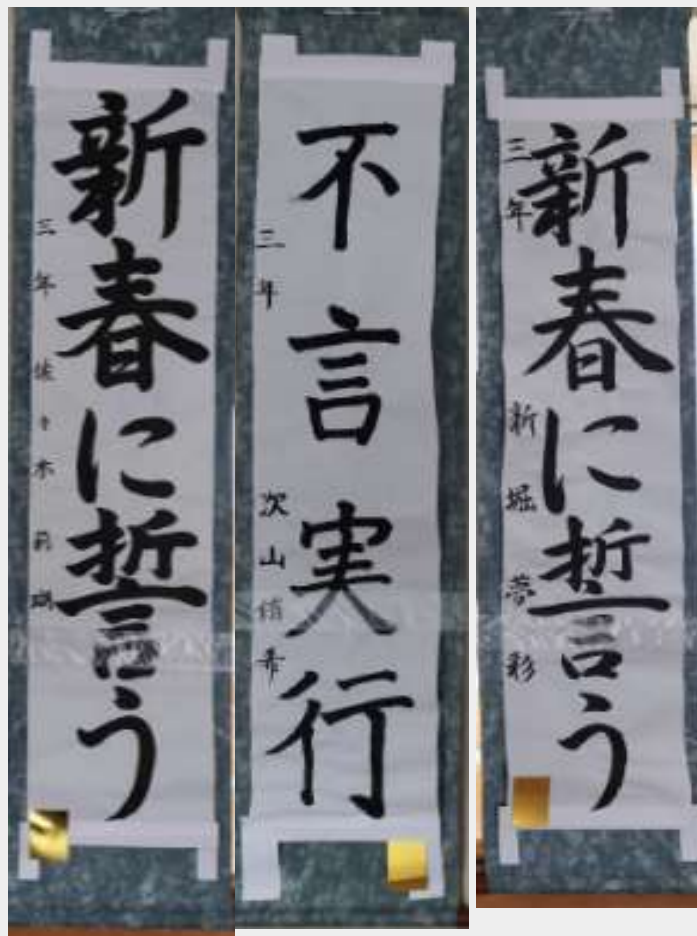 新春に誓う
三年 佐々木莉瑚
不言実行
三年 次山侑希
新春に誓う
三年 新堀夢彩